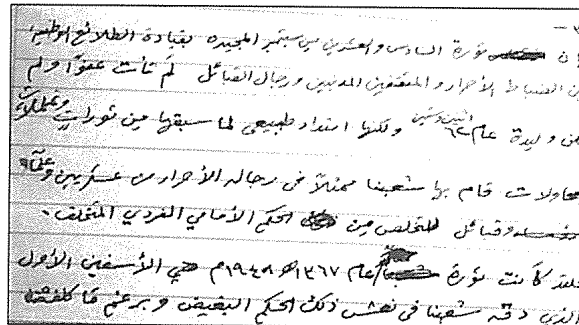 إن ثورة السادس والعشرين من سبتمبر المجيده بقيادة الطلائع الوطنية
من الضباط الأحرار والمثقفين المدنيين ورجال القبائل لم تأت عفوًا ولم
تكن وليدة عام اثنين وستين ٦٢ ولكنها امتداد طبيعي لما سبقها من ثورات
محاولات قام بها شعبنا ممثلاً في رجاله الأحرار من عسكريين وعلماء
وقبائل للتخلص من الحكم الأمامي الفردي المتخلف .
فلقد كانت ثورة عام ١٣٦٧هـ ١٩٤٨م هي الأسفين الأول
الذي دقه شعبنا في نعش ذلك الحكم البغيض وبرغم ما